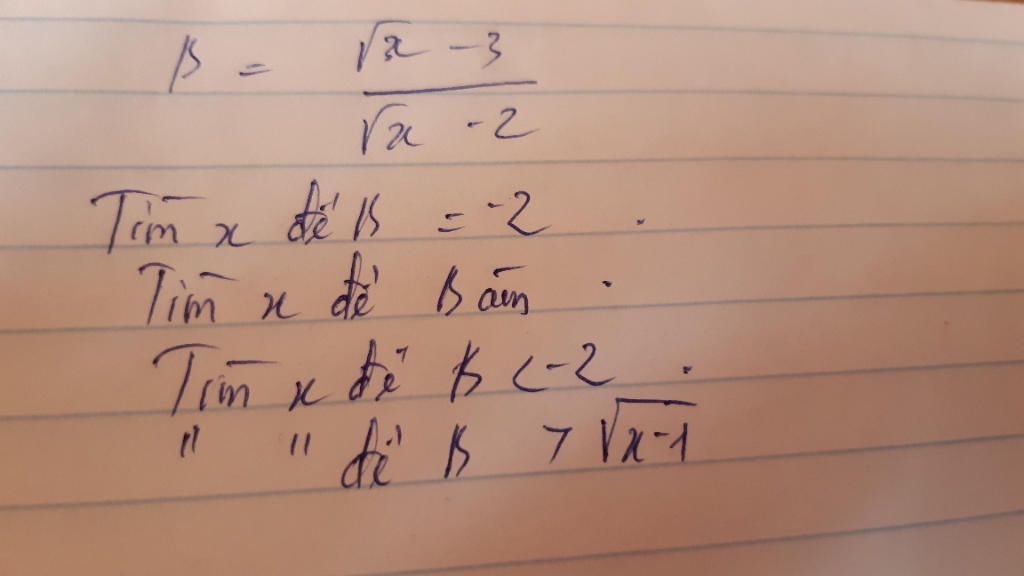 B = \frac{\sqrt{x} - 3}{\sqrt{x} - 2}
Tìm x để B = -2 .
Tìm x để B âm .
Tìm x để B < -2 .
" " để B > \sqrt{x-1}